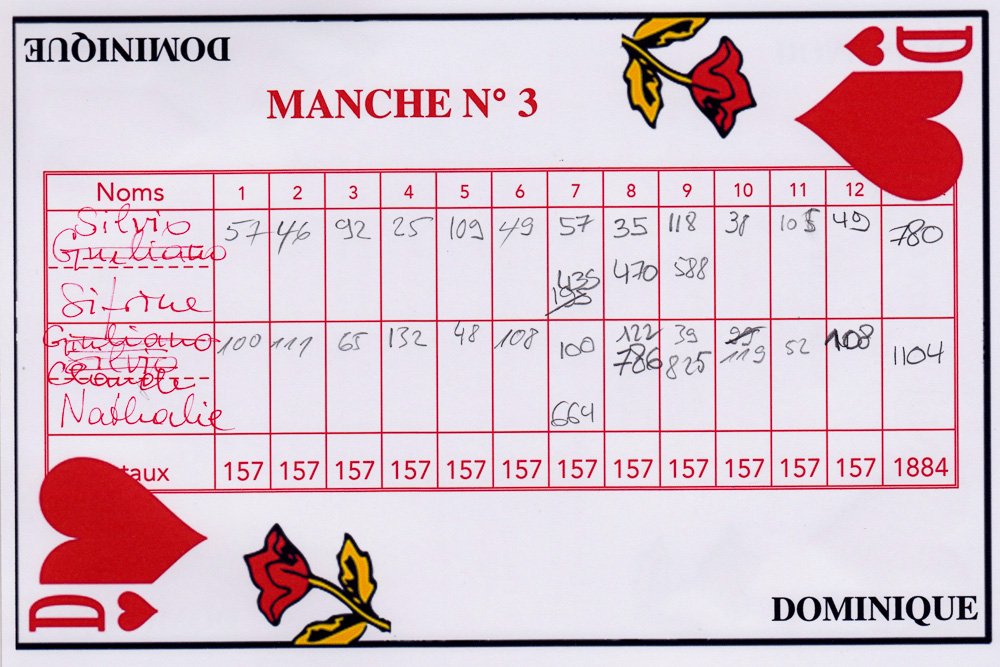 DOMINIQUE
D
MANCHE N° 3
Noms 1 2 3 4 5 6 7 8 9 10 11 12
Silvio 57 46 92 25 109 49 57 35 118 38 105 49 780
Giuliano
435 470 588
195
Giuliano 100 111 65 132 48 108 100 122 39 95 52 108 1104
Silvio 786 825 119
Claude
Nathalie 664
taux 157 157 157 157 157 157 157 157 157 157 157 157 1884
D
DOMINIQUE